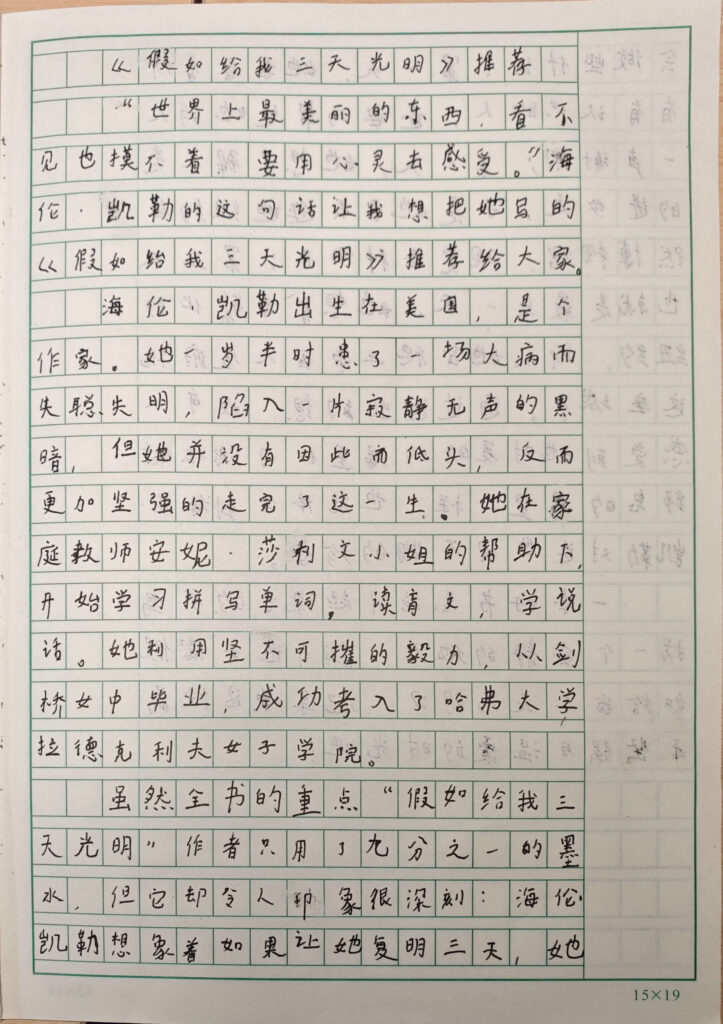 《假如给我三天光明》推荐
“世界上最美丽的东西，看不
见也摸不着，要用心灵去感受。”海
伦·凯勒的这句话让我想把她写的
《假如给我三天光明》推荐给大家。
海伦·凯勒出生在美国，是个
作家。她一岁半时患了一场大病而
失聪失明，陷入一片寂静无声的黑
暗，但她并没有因此而低头，反而
更加坚强的走完了这一生。她在家
庭教师安妮·莎利文小姐的帮助下，
开始学习拼写单词，读盲文，学说
话。她利用坚不可摧的毅力，从剑
桥女中毕业，成功考入了哈弗大学，
拉德克利夫女子学院。
虽然全书的重点“假如给我三
天光明”作者只用了九分之一的墨
水，但它却令人印象很深刻：海伦·
凯勒想象着如果让她复明三天，她
15×19